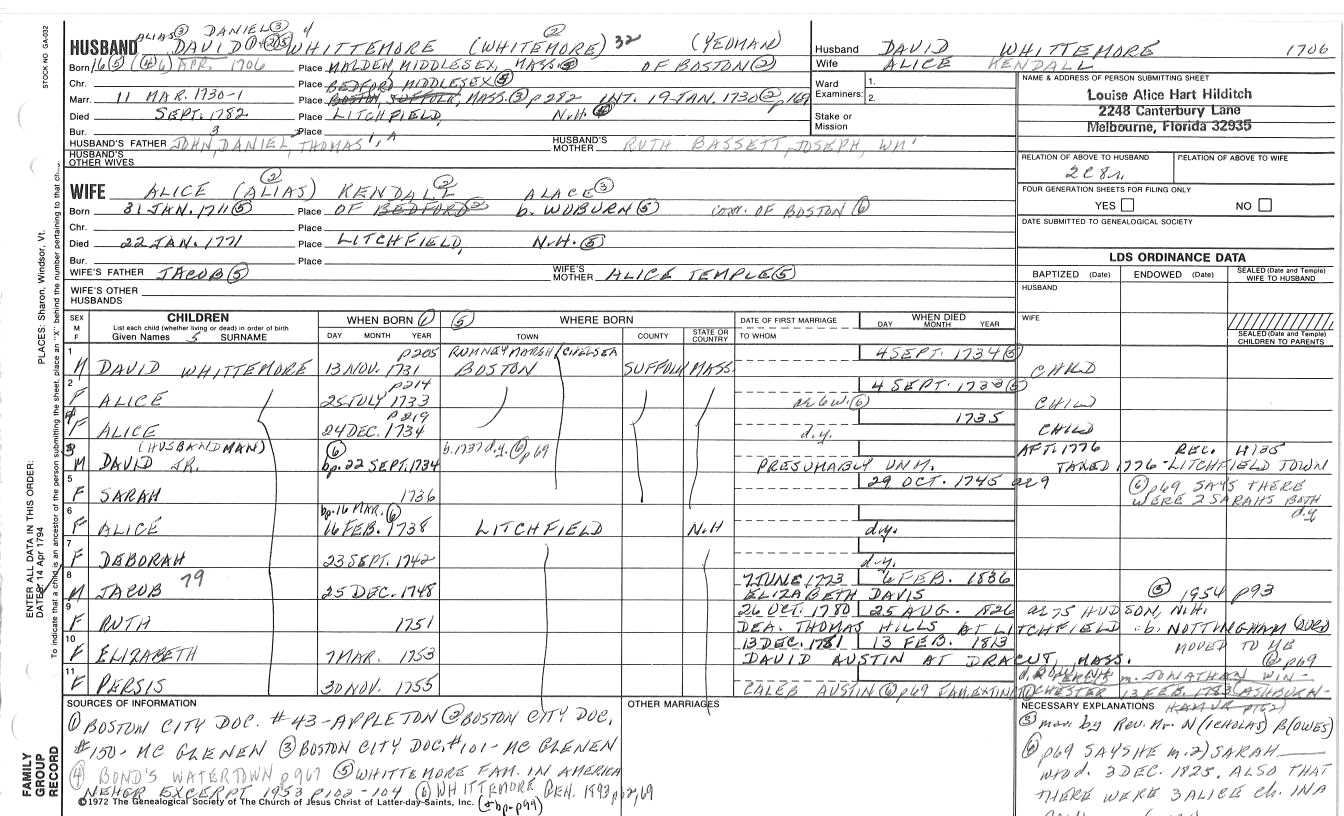 ALIAS ③ DANIEL ③ 4
STOCK NO. GA-032
HUSBAND DAVID WHITTEMORE (WHITEMORE) ② 32 (YEOMAN)
Born 16 ⑤ (④ 6) APR. 1706 Place MALDEN, MIDDLESEX, MASS. ⑤ OF BOSTON ②
Chr. Place BEDFORD MIDDLESEX ⑤
Marr. 11 MAR. 1730-1 Place BOSTON, SUFFOLK, MASS. ③ p282 INT. 19 JAN. 1730 ② p169
Died SEPT. 1782 Place LITCHFIELD, N.H.
Bur. Place
HUSBAND'S FATHER JOHN, DANIEL, THOMAS
HUSBAND'S MOTHER RUTH BASSETT, JOSEPH, WM
HUSBAND'S OTHER WIVES
WIFE ALICE (ALIAS) ② KENDALL ② ALACE ③
Born 31 JAN. 1711 ⑤ Place OF BEDFORD ② b. WOBURN ⑤ OF BOSTON ⑥
Chr. Place
Died 22 JAN. 1771 Place LITCHFIELD, N.H. ⑤
Bur. Place
WIFE'S FATHER JACOB ⑤
WIFE'S MOTHER ALICE TEMPLE ⑤
WIFE'S OTHER HUSBANDS
Husband DAVID WHITTEMORE 1706
Wife ALICE KENDALL
Ward Examiners: 1. 2.
Stake or Mission
NAME & ADDRESS OF PERSON SUBMITTING SHEET
Louise Alice Hart Hilditch
2248 Canterbury Lane
Melbourne, Florida 32935
RELATION OF ABOVE TO HUSBAND RELATION OF ABOVE TO WIFE
2C8r.
FOUR GENERATION SHEETS FOR FILING ONLY
YES NO
DATE SUBMITTED TO GENEALOGICAL SOCIETY
LDS ORDINANCE DATA
BAPTIZED (Date) ENDOWED (Date) SEALED (Date and Temple) WIFE TO HUSBAND
HUSBAND
WIFE
SEALED (Date and Temple) CHILDREN TO PARENTS
SEX M F
CHILDREN
List each child (whether living or dead) in order of birth
Given Names 5 SURNAME
WHEN BORN ⑥
DAY MONTH YEAR
⑤ WHERE BORN
TOWN COUNTY STATE OR COUNTRY
DATE OF FIRST MARRIAGE
TO WHOM
WHEN DIED
DAY MONTH YEAR
1 p205 RUMNEY MARSH / CHELSEA 4 SEPT. 1734 ⑤
M DAVID WHITTEMORE 13 NOV. 1731 BOSTON SUFFOLK MASS. CHILD
2 p214 4 SEPT. 1738 ⑤
F ALICE 25 JULY 1733 CHILD
4 p219 1735
F ALICE 24 DEC. 1734 d.y. CHILD
3 (HUSBANDMAN) ⑥ b. 1737 d.y. ⑥ p69 AFT. 1776 REC. H135
M DAVID JR. bp. 22 SEPT. 1734 PRESUMABLY UNM. TAXED 1776-LITCHFIELD TOWN
5 29 OCT. 1745 ae 9 ⑥ p69 SAYS THERE
F SARAH 1736 WERE 2 SARAHS BOTH d.y
6 bp. 16 MAR. ⑥
F ALICE 16 FEB. 1738 LITCHFIELD N.H d.y.
7
F DEBORAH 23 SEPT. 1742 d.y.
8 7 JUNE 1773 6 FEB. 1836
M JACOB 79 25 DEC. 1748 ELIZABETH DAVIS ⑤ 1954 p93
9 26 OCT. 1780 25 AUG. 1826 ae 75 HUDSON, N.H.
F RUTH 1751 DEA. THOMAS HILLS AT LITCHFIELD b. NOTTINGHAM
10 13 DEC. 1781 13 FEB. 1813 MOVED TO ME
F ELIZABETH 7 MAR. 1753 DAVID AUSTIN AT DRACUT, MASS. ⑥ p69
11 m. JONATHAN WIN-
F PERSIS 30 NOV. 1755 CALEB AUSTIN ⑥ p69 CHESTER 13 FEB. 1783 ASHBURN-
SOURCES OF INFORMATION
① BOSTON CITY DOC. #43-APPLETON ② BOSTON CITY DOC.
#150-MC GLENEN ③ BOSTON CITY DOC. #101-MC GLENEN
④ BOND'S WATERTOWN p967 ⑤ WHITTEMORE FAM. IN AMERICA
NEHGR EXCERPT 1953 p102-104 ⑥ WHITTEMORE GEN. 1893 p12, 69
(+bp-p99)
©1972 The Genealogical Society of The Church of Jesus Christ of Latter-day Saints, Inc.
OTHER MARRIAGES
NECESSARY EXPLANATIONS
③ mar. by Rev. Mr. N(ICHOLAS) B(OWES)
⑥ p69 SAYS HE m. 2) SARAH
who d. 3 DEC. 1825. ALSO THAT
THERE WERE 3 ALICE Ch. IN A
FAMILY GROUP RECORD
ENTER ALL DATA IN THIS ORDER:
DATES: 14 Apr 1794 PLACES: Sharon, Windsor, Vt.
To indicate that a child is an ancestor of the person submitting the sheet, place an "X" behind the number pertaining to that ch